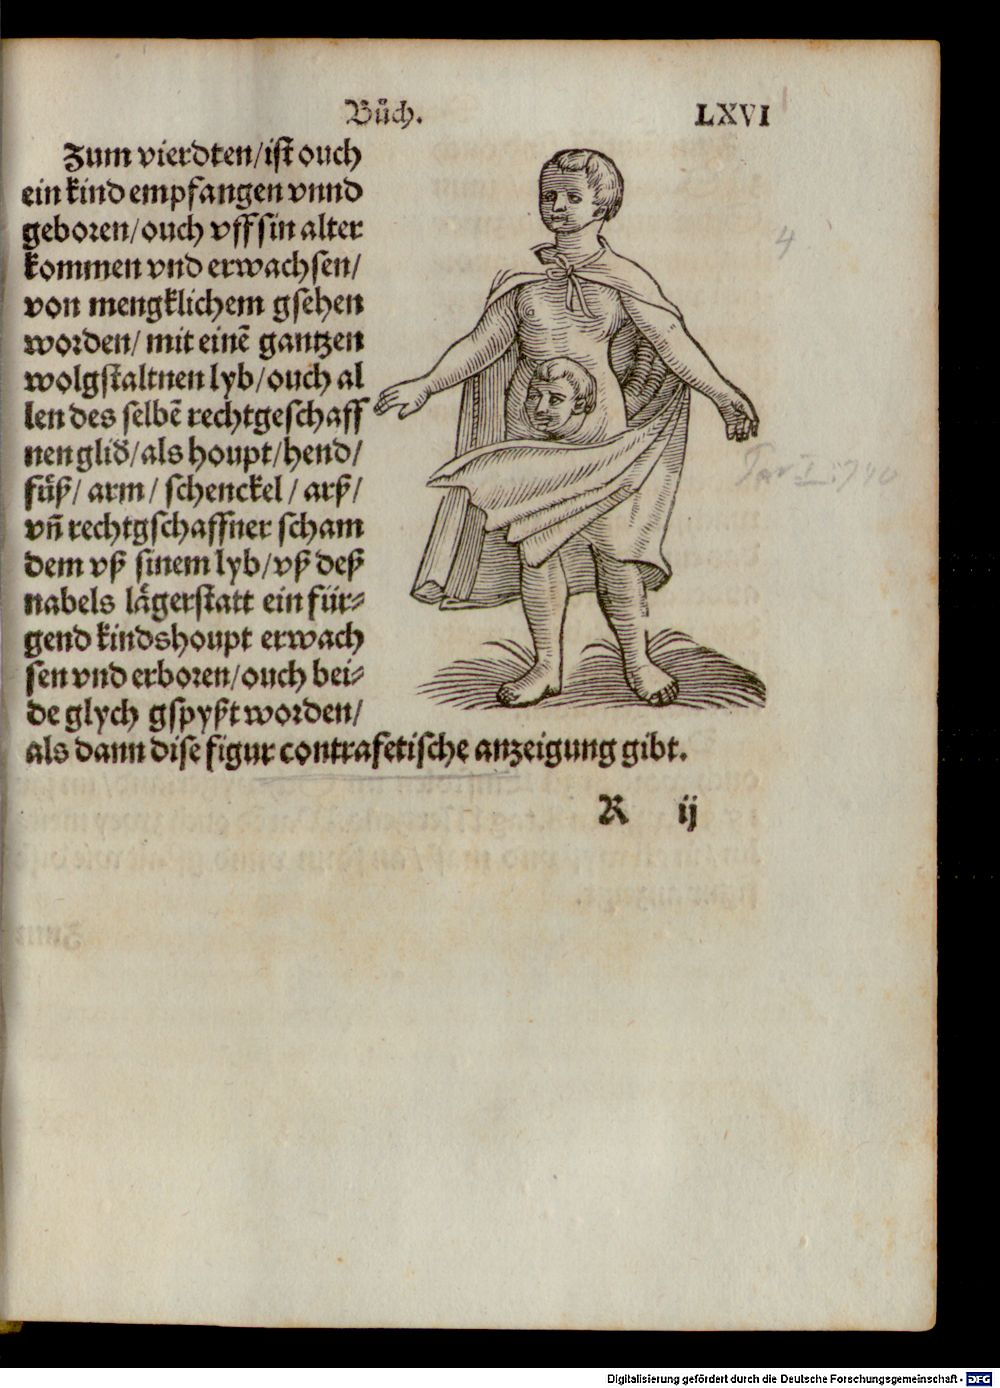 Bůch.
LXVI
Zum vierdten/ist ouch
ein kind empfangen vnnd
geboren/ouch vff sin alter
kommen vnd erwachsen/
von mengklichem gsehen
worden/ mit einẽ gantzen
wolgstaltnen lyb/ouch al
len des selbẽ rechtgeschaff
nen glid/als houpt/hend/
fůß/ arm/ schenckel/ arß/
vñ rechtgschaffner scham
dem vß sinem lyb/vß deß
nabels lägerstatt ein für⸗
gend kindshoupt erwach
sen vnd erboren/ouch bei⸗
de glych gspyßt worden/
als dann dise figur contrafetische anzeigung gibt.
R ij
4
Digitalisierung gefördert durch die Deutsche Forschungsgemeinschaft - DFG